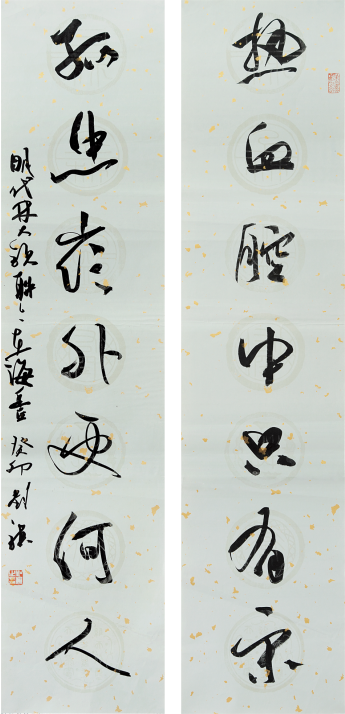 热血腔中只有宋
孤忠岭外更何人
明代林大钦联 在海丰 癸卯 刘